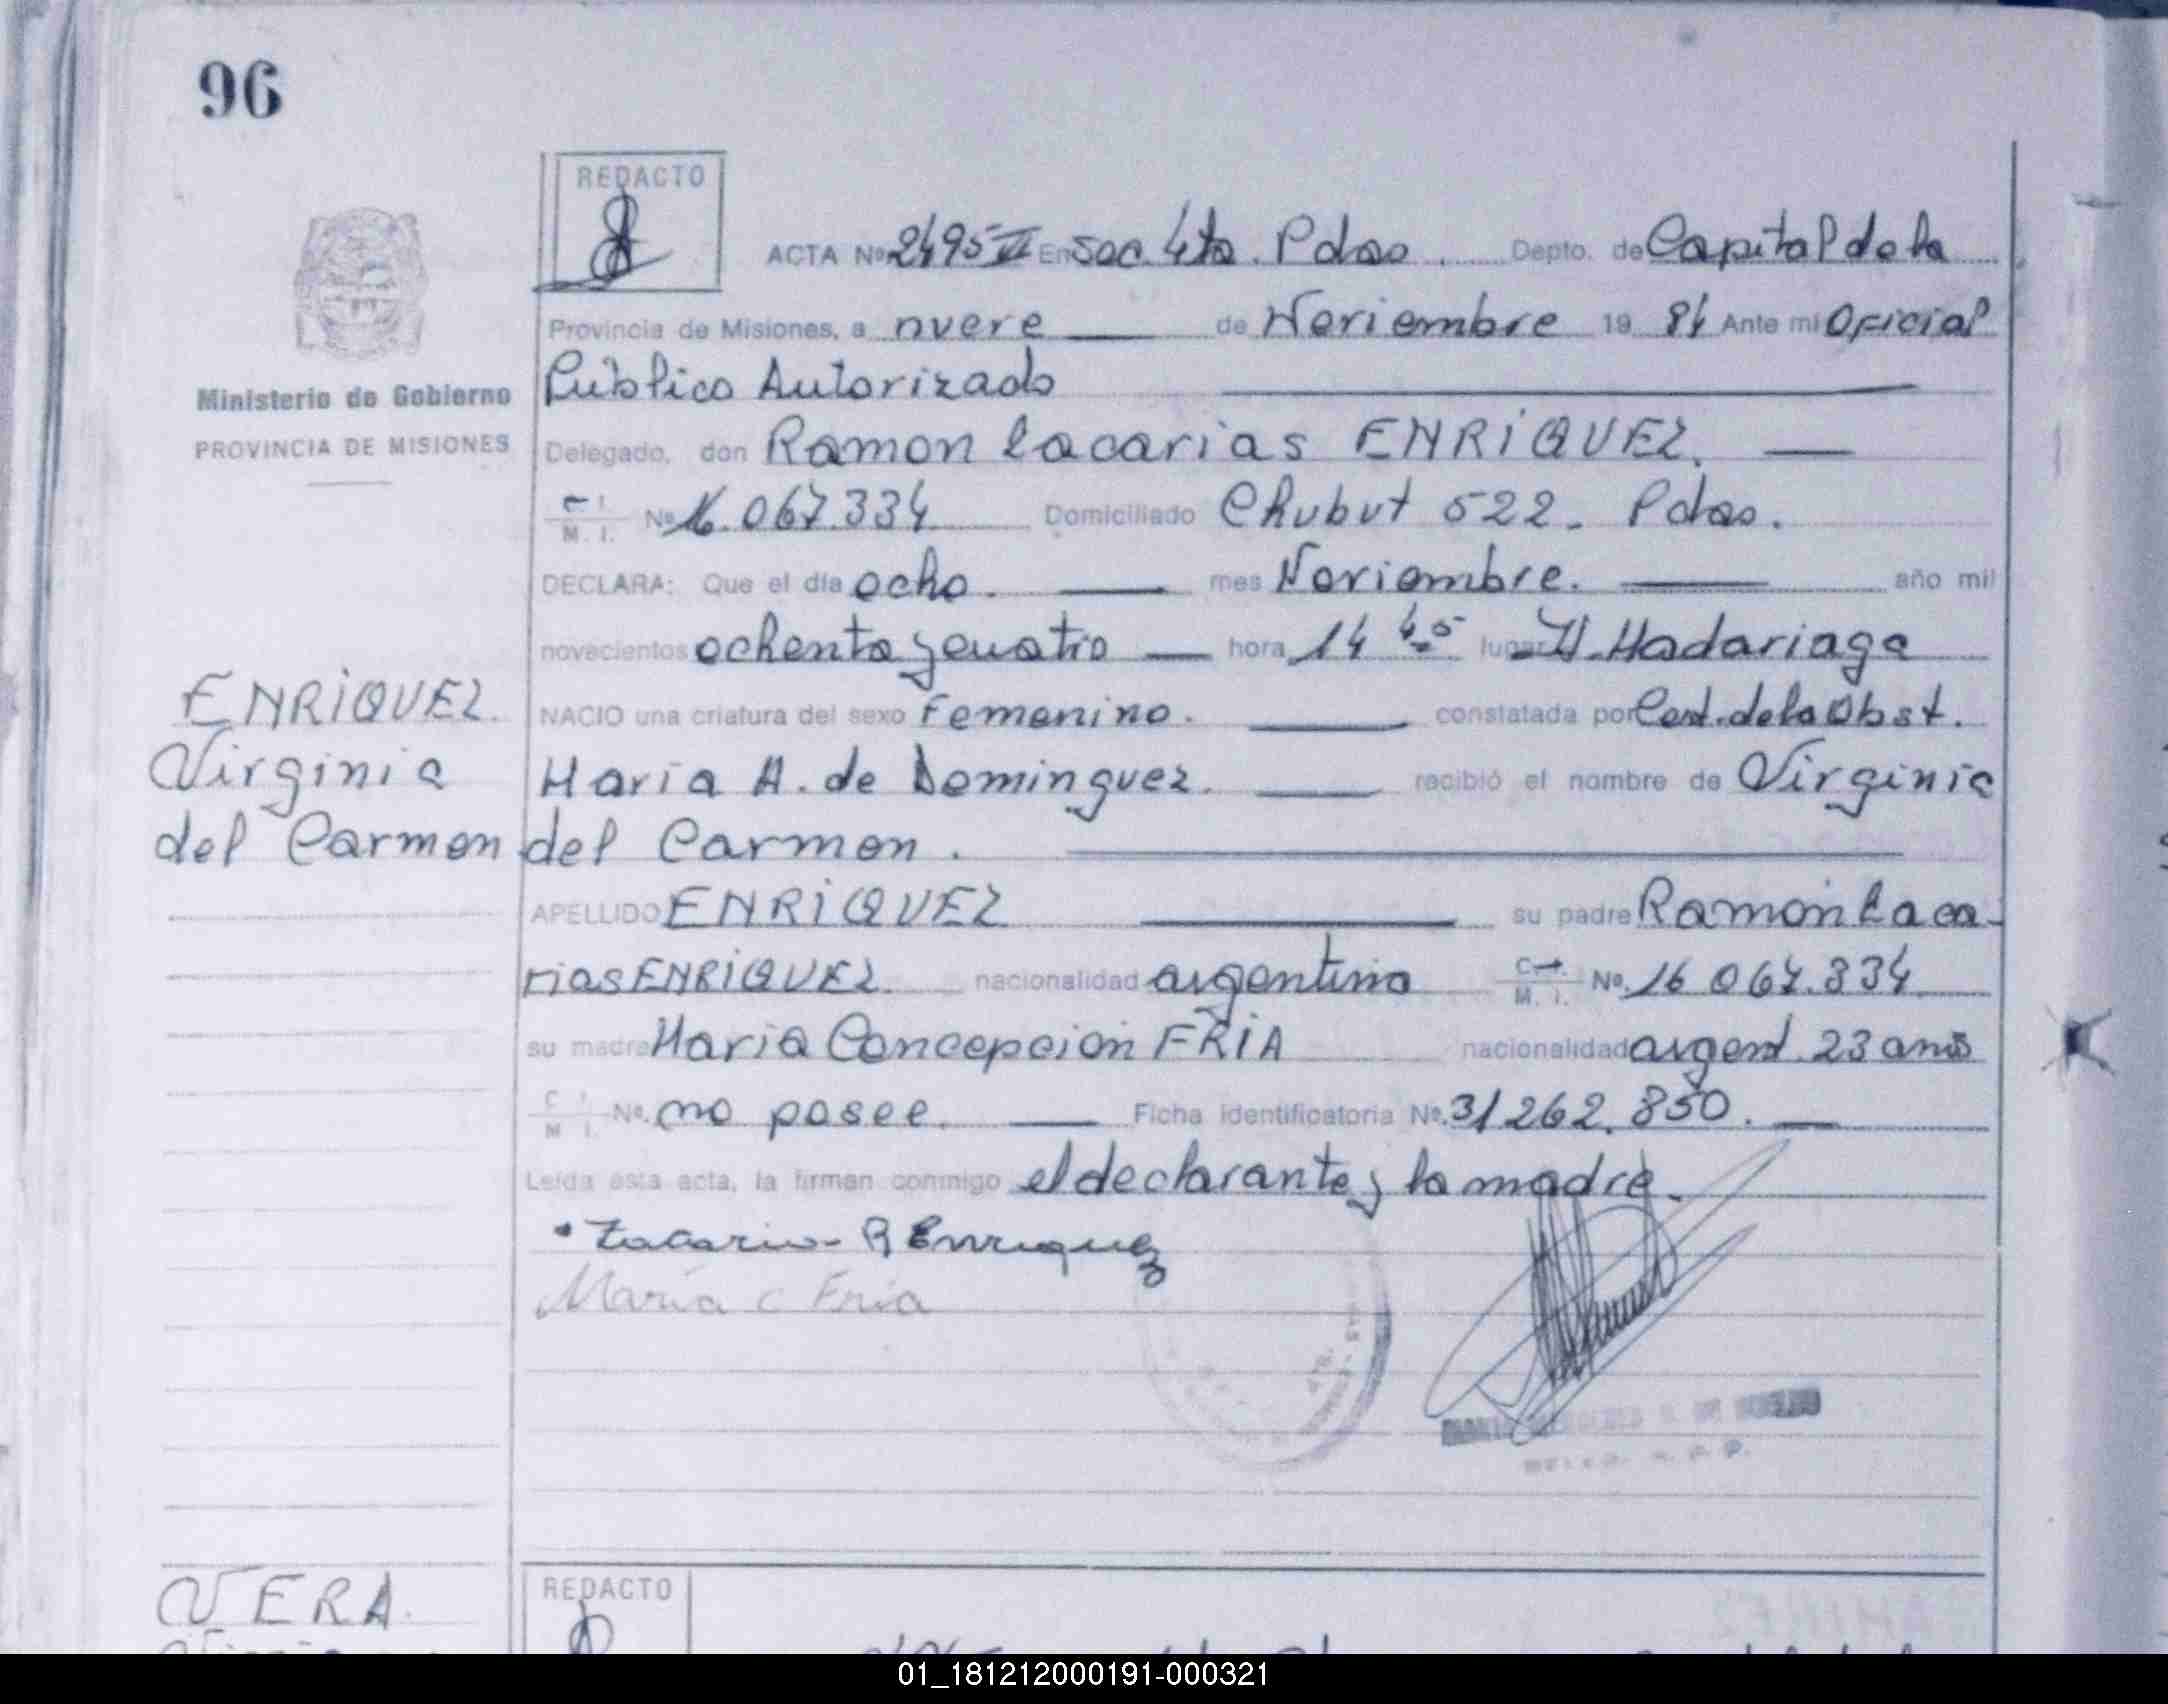 96
REDACTO
ACTA Nº 2495 VI En Sec. 4ta. Pdas. Depto. de Capital de la
Provincia de Misiones, a nueve de Noviembre 19 84 Ante mi Oficial
Ministerio de Gobierno
PROVINCIA DE MISIONES
Público Autorizado
Delegado, don Ramon Zacarias ENRIQUEZ.
M. I. Nº 16.067.334 Domiciliado Chubut 522. Pdas.
DECLARA: Que el día ocho. mes Noviembre. año mil
novecientos ochenta y cuatro hora 14 45 lugar H. Madariaga
NACIO una criatura del sexo Femenino. constatada por Cert. de la Obst.
Maria A. de Dominguez. recibió el nombre de Virginia
del Carmen.
ENRIQUEZ.
Virginia
del Carmen
APELLIDO ENRIQUEZ su padre Ramón Zaca-
rias ENRIQUEZ. nacionalidad argentino C. M. I. Nº 16 067.334
su madre Maria Concepción FRIA nacionalidad argent. 23 años
C I M I. Nº. no posee. Ficha identificatoria Nº. 31262.850.
Leída esta acta, la firman conmigo el declarante y la madre.
Zacarias R Enriquez
María C Fria
VERA.
REDACTO
01_181212000191-000321